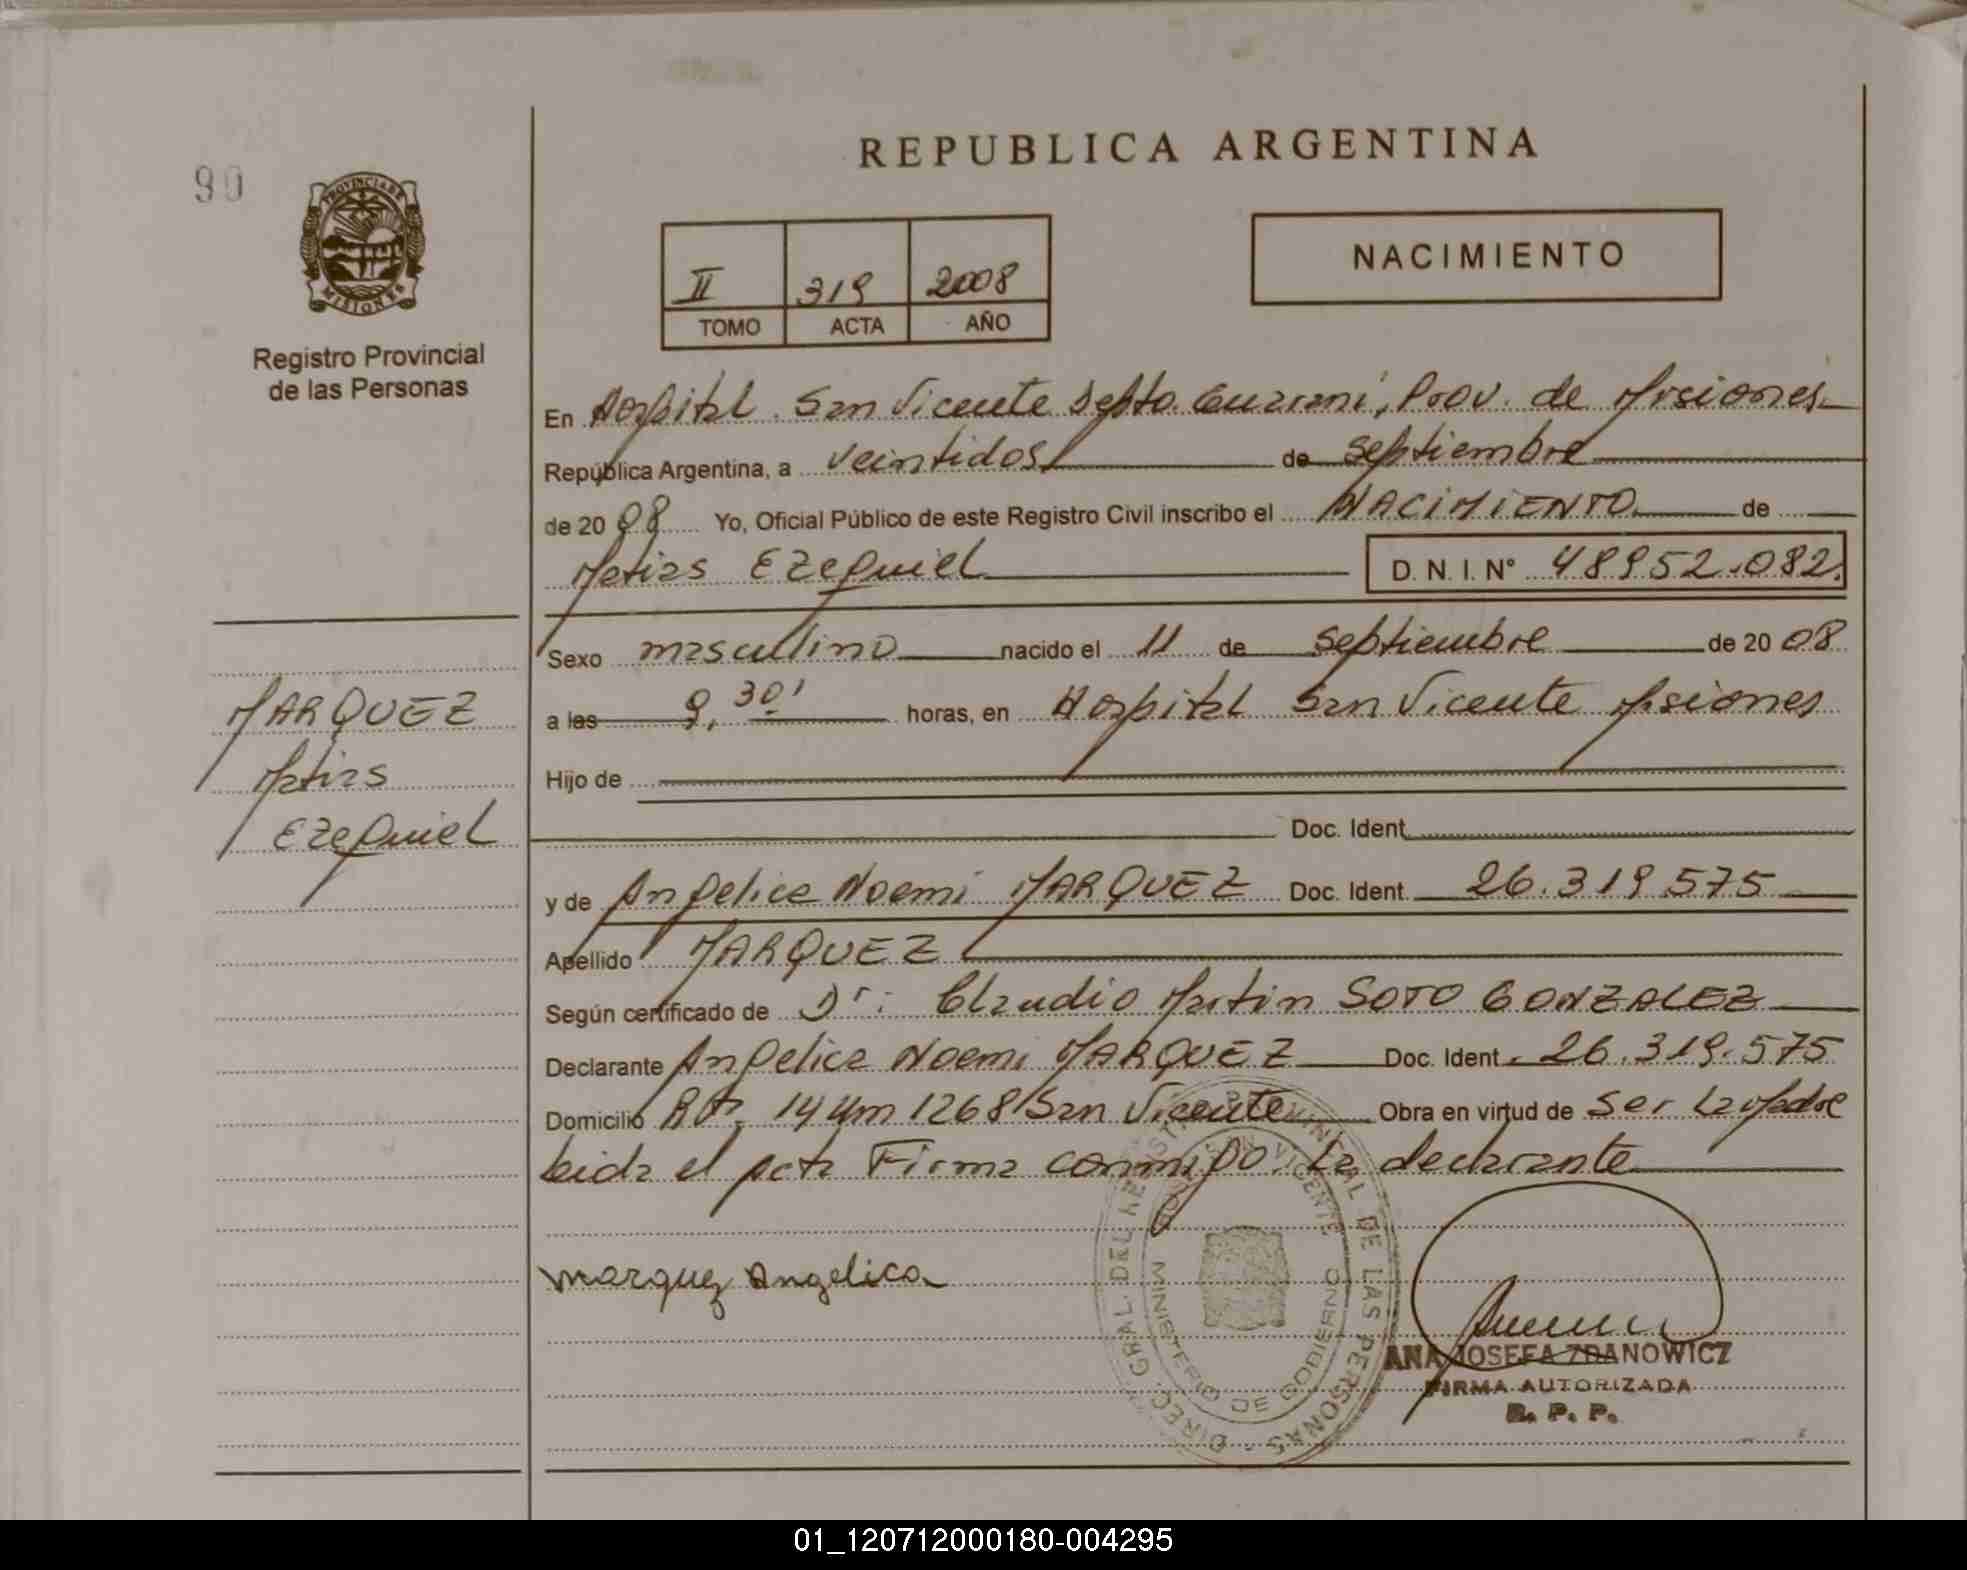 REPUBLICA ARGENTINA
90
PROVINCIA DE
MISIONES
Registro Provincial
de las Personas
II 319 2008
TOMO ACTA AÑO
NACIMIENTO
En Hospital San Vicente Depto Guarani, Prov. de Misiones
República Argentina, a veintidos de Septiembre
de 2008 Yo, Oficial Público de este Registro Civil inscribo el NACIMIENTO de
Matias Ezequiel D. N. I. Nº 48952.082.
Sexo masculino nacido el 11 de Septiembre de 2008
a las 9,30' horas, en Hospital San Vicente Misiones
Hijo de
Doc. Ident.
y de Angelica Noemi MARQUEZ Doc. Ident. 26.319.575
Apellido MARQUEZ
Según certificado de Dr: Claudio Martin SOTO GONZALEZ
Declarante Angelica Noemi MARQUEZ Doc. Ident. 26.319.575
Domicilio Rta 14 Km 1268 San Vicente Obra en virtud de Ser la Madre
Leida el acta Firma conmigo. La declarante
MARQUEZ
Matias
Ezequiel
Marquez Angelica
DIREC. GRAL. DEL REGISTRO PROVINCIAL DE LAS PERSONAS
SAN VICENTE
MINISTERIO DE GOBIERNO
ANA JOSEFA ZDANOWICZ
FIRMA AUTORIZADA
R. P. P.
01_120712000180-004295